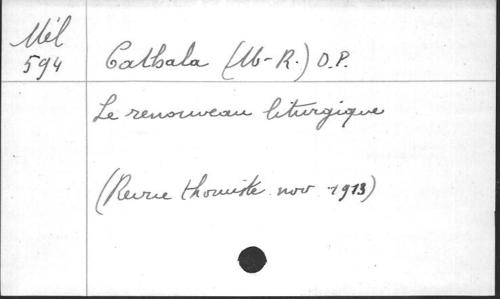 Mél
594
Cathala (M-R.) O.P.
Le renouveau liturgique
(Revue thomiste. nov. 1913)